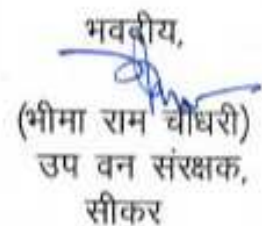 भवदीय,
(भीमा राम चौधरी)
उप वन संरक्षक,
सीकर